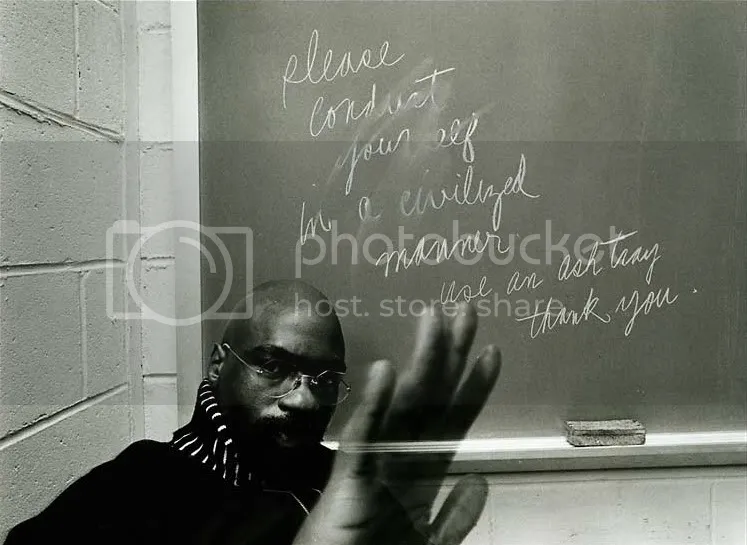 please
conduct
yourself
in a civilized
manner
use an ashtray
thank you.
photobucket
host. store. share